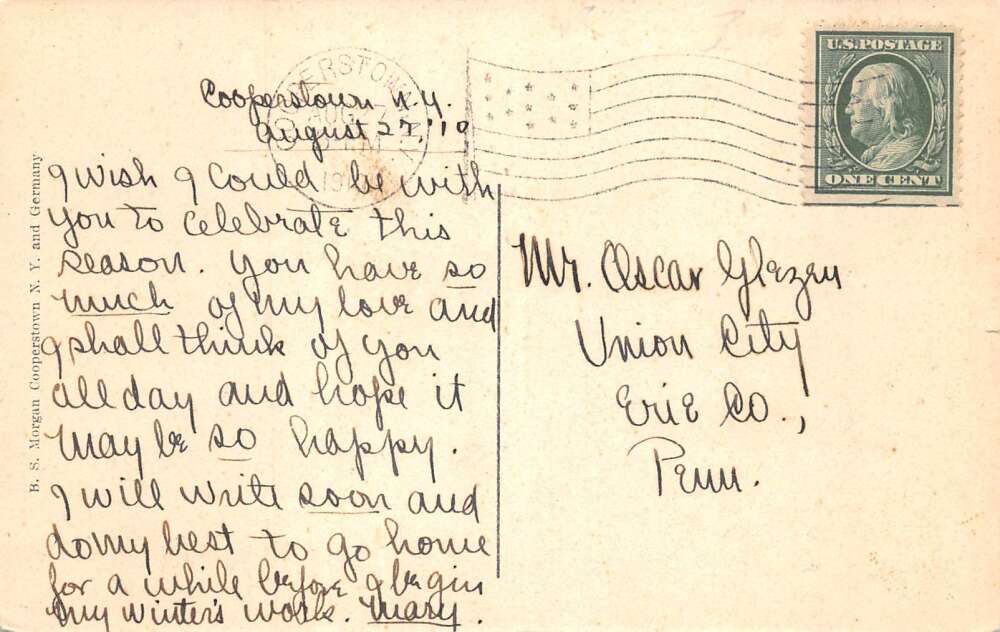 COOPERSTOWN
AUG
191
U.S. POSTAGE
ONE CENT
Cooperstown N.Y.
August 27, '10
I wish I could be with
you to celebrate this
season. You have so
much of my love and
I shall think of you
all day and hope it
may be so happy.
I will write soon and
do my best to go home
for a while before I begin
my winter's work. Mary.
Mr. Oscar Glezen
Union City
Erie Co.,
Penn.
B. S. Morgan Cooperstown N. Y. and Germany